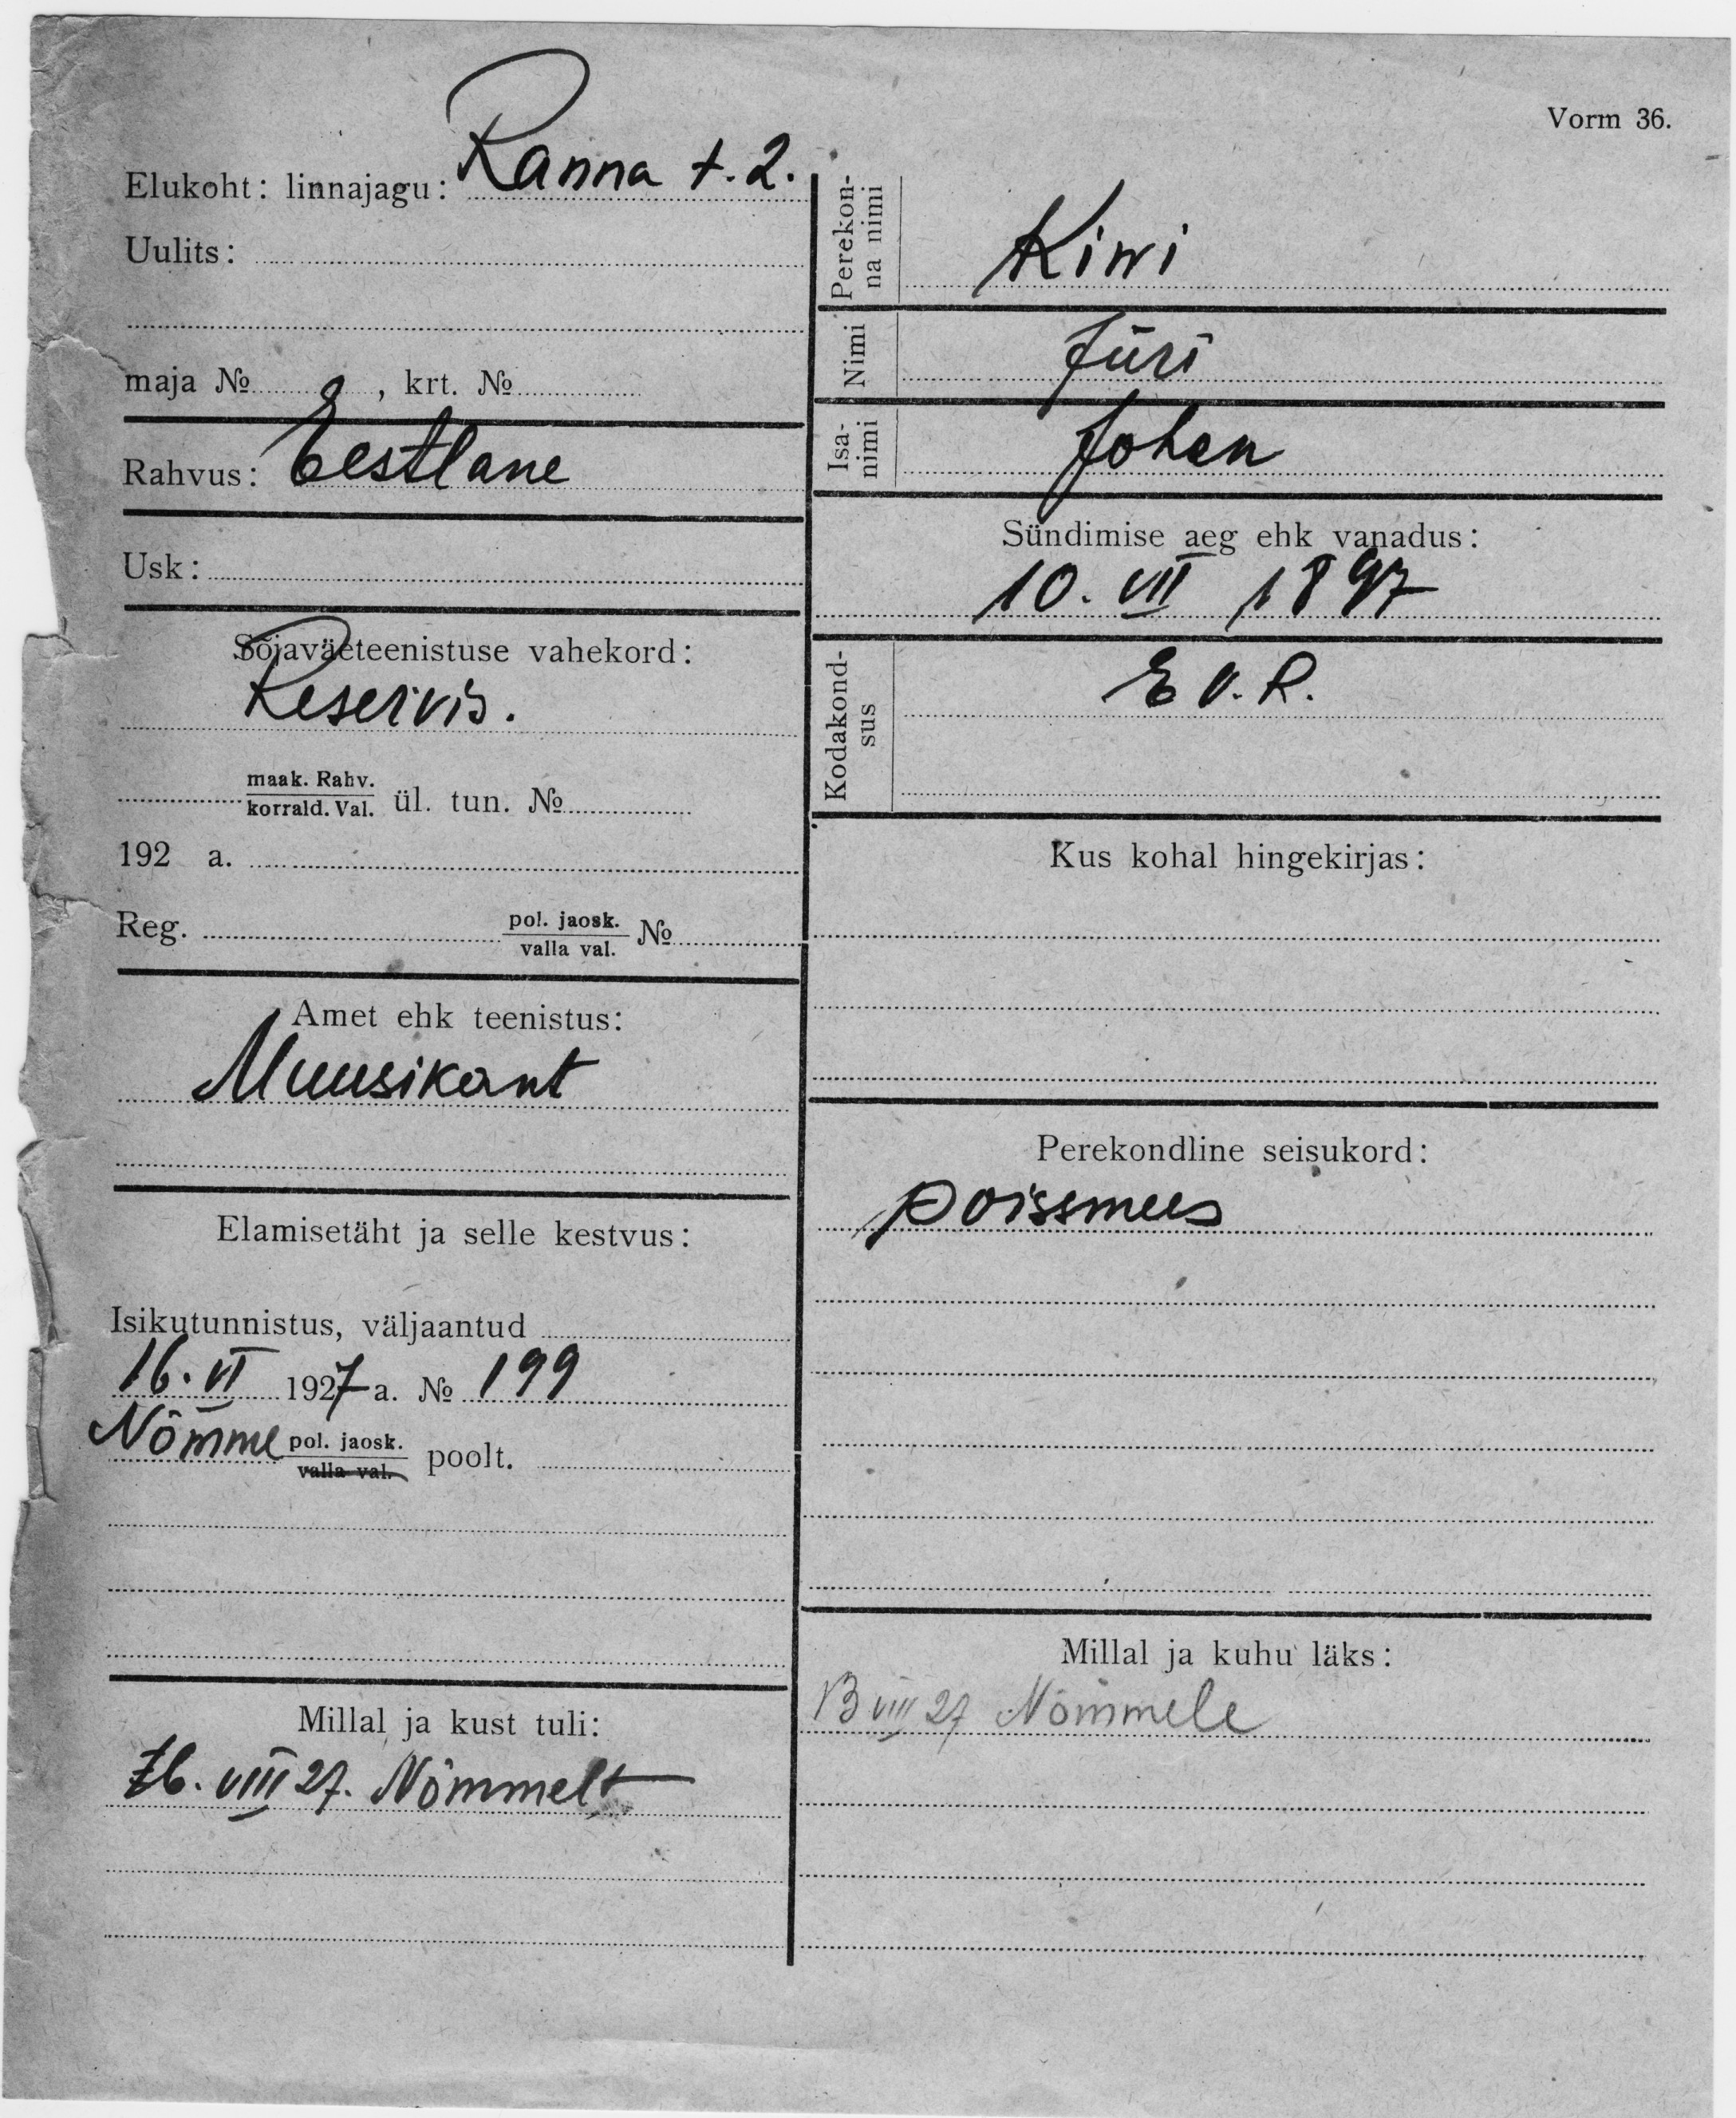 Vorm 36.
Elukoht: linnajagu: Ranna t. 2.
Uulits:
maja №, krt. №
Rahvus: Eestlane
Usk:
Sõjaväeteenistuse vahekord:
Reservis.
maak. Rahv.
korrald. Val. ül. tun. №
192 a.
Reg. pol. jaosk.
valla val. №
Amet ehk teenistus:
Muusikant
Elamisetäht ja selle kestvus:
Isikutunnistus, väljaantud
16. VI 1927 a. № 199
Nõmme pol. jaosk.
valla val. poolt.
Millal ja kust tuli:
VIII 27. Nõmmelt
Perekon-
na nimi Kiwi
Nimi Jüri
Isa-
nimi Johan
Sündimise aeg ehk vanadus:
10. VII 1897
Kodakond-
sus E V. R.
Kus kohal hingekirjas:
Perekondline seisukord:
poissmees
Millal ja kuhu läks:
13 VIII 27 Nõmmele